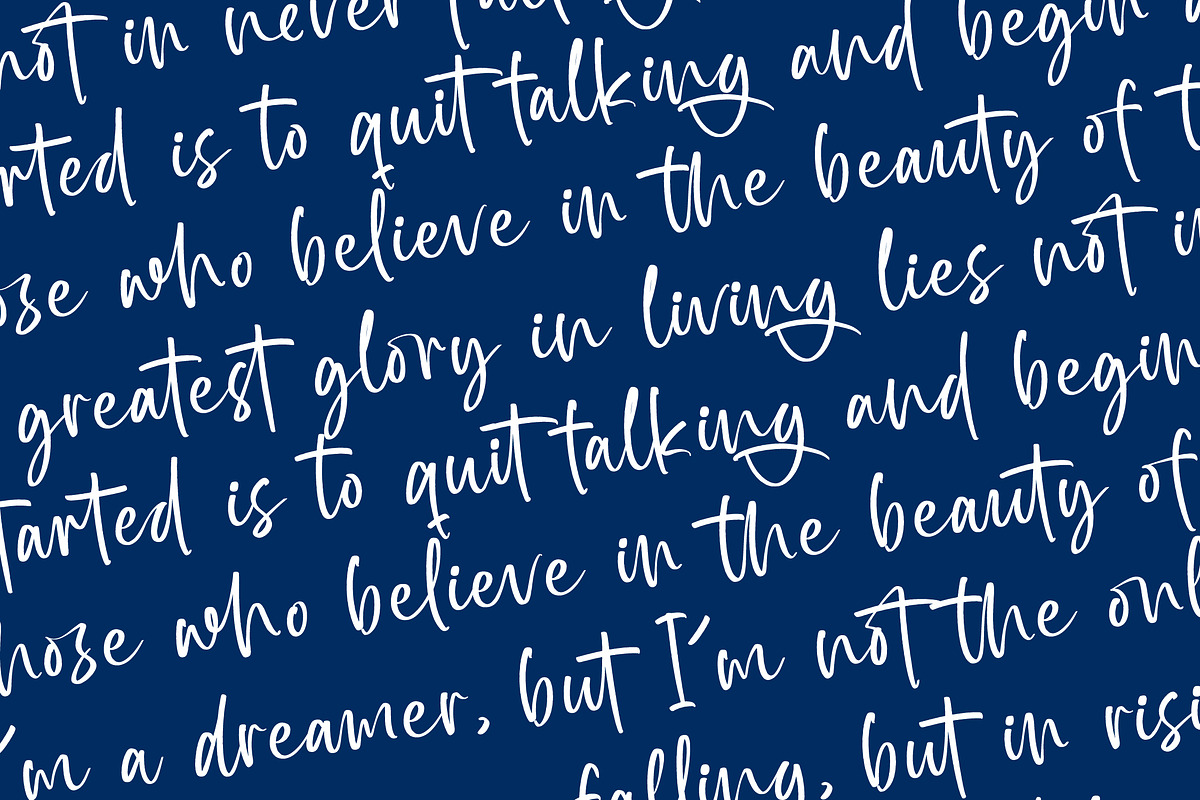 not in never
rted is to quit talking and begin
ose who believe in the beauty of t
greatest glory in living lies not in
tarted is to quit talking and begin
hose who believe in the beauty of
'm a dreamer, but I'm not the onl
falling, but in risi